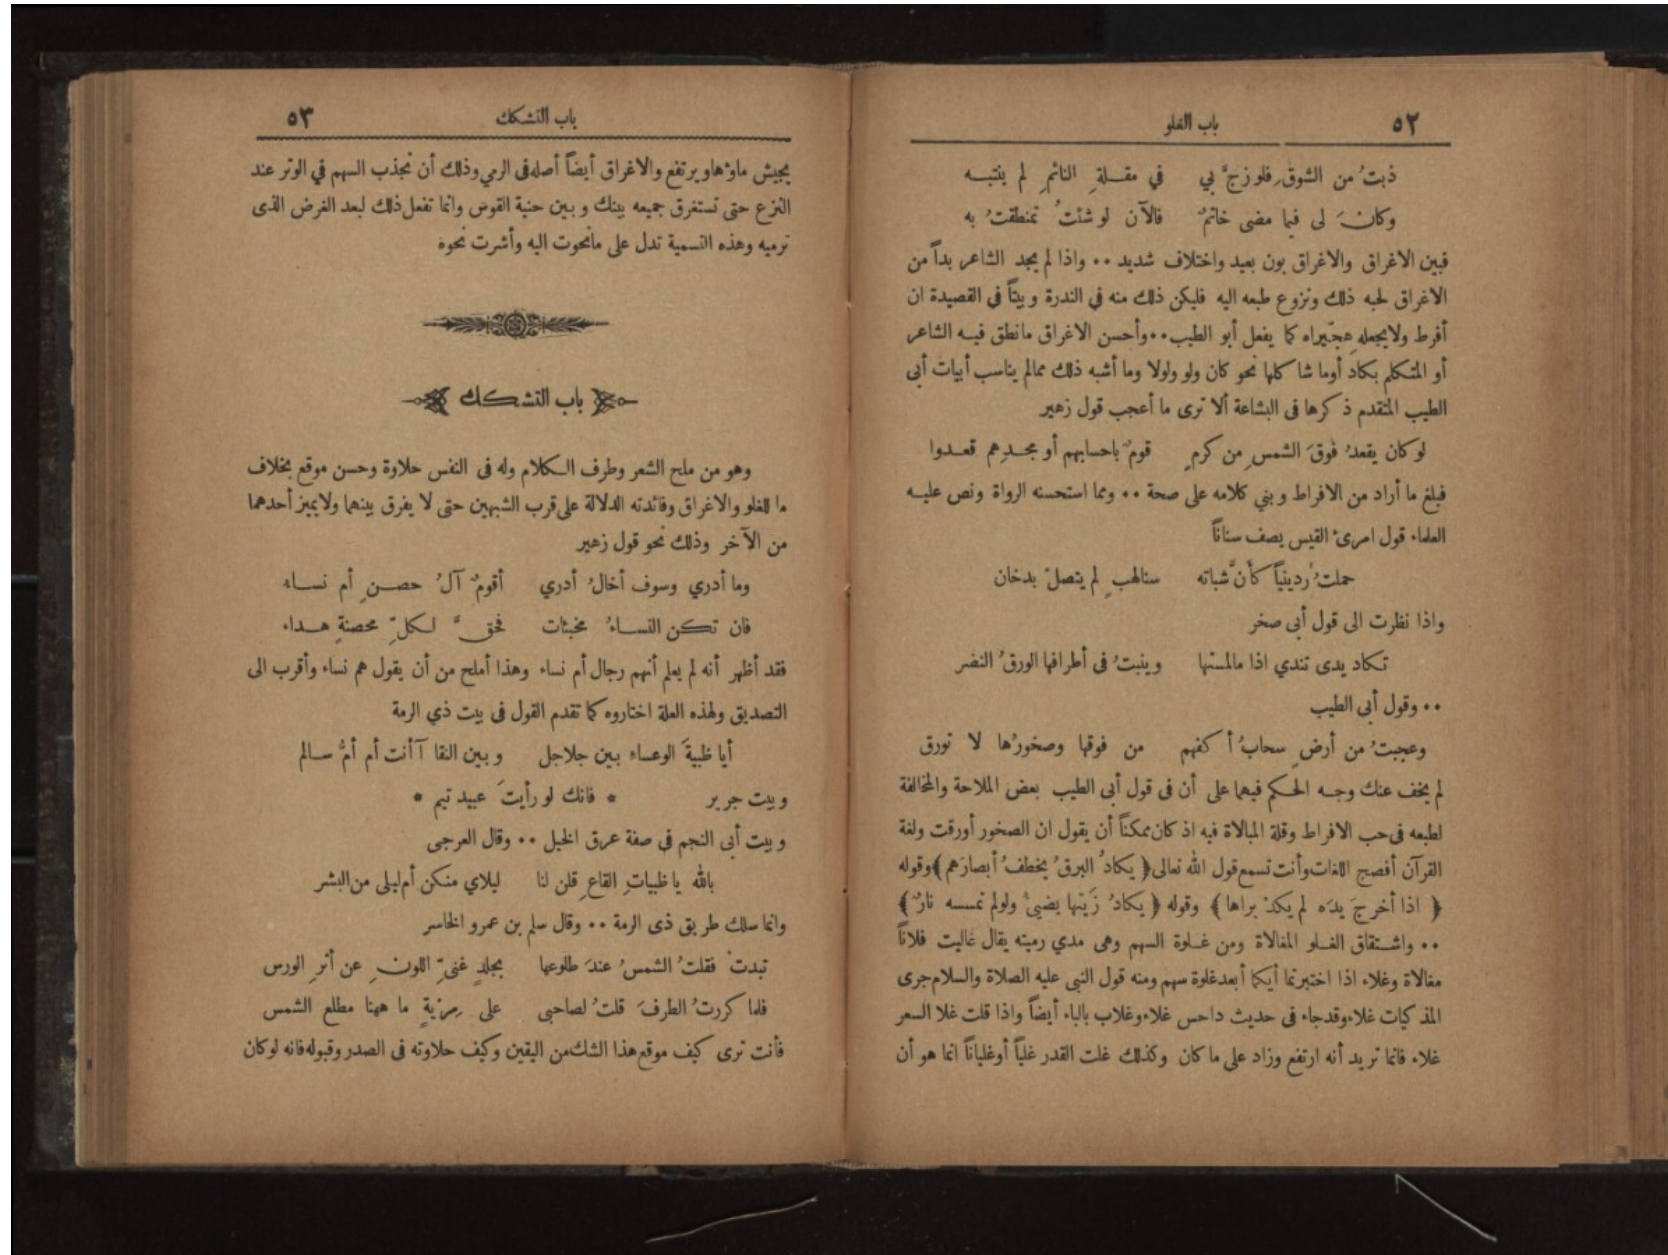 ٥٢ باب الغلو
ذبتُ من الشوقِ فلو زجَّ بي في مقـلةِ النائمِ لم ينتبـه
وكانَ لى فيما مضى خاتمٌ فالآن لو شئتُ تمنطقتُ به
فبين الاغراق والاغراق بون بعيد واختلاف شديد ٠٠ واذا لم يجد الشاعر بداً من
الاغراق لحبه ذلك ونزوع طبعه اليه فليكن ذلك منه في الندرة وبيتاً في القصيدة ان
أفرط ولايجعله هِجّيراه كما يفعل أبو الطيب ٠٠ وأحسن الاغراق مانطق فيـه الشاعر
أو المتكلم بكاد أوما شاكلها نحو كان ولو ولولا وما أشبه ذلك ممالم يناسب أبيات أبى
الطيب المتقدم ذكرها فى البشاعة ألا ترى ما أعجب قول زهير
لو كان يقعدُ فوقَ الشمسِ من كرمٍ قومٌ باحسابهم أو مجـدِهم قعـدوا
فبلغ ما أراد من الافراط وبني كلامه على صحة ٠٠ ومما استحسنه الرواة ونص عليـه
العلماء قول امرئ القيس يصف سناناً
حملتُ ردينياً كأنَّ شباته سنالهبٍ لم يتصلْ بدخان
واذا نظرت الى قول أبى صخر
تكاد يدى تندي اذا مالمستها وينبتُ فى أطرافها الورقُ النضر
٠٠ وقول أبى الطيب
وعجبتُ من أرضٍ سحابُ أكفهم من فوقها وصخورُها لا تورق
لم يخف عنك وجـه الحكم فيهما على أن فى قول أبى الطيب بعض الملاحة والمخالفة
لطبعه فى حب الافراط وقلة المبالاة فيه اذ كان ممكناً أن يقول ان الصخور أورقت ولغة
القرآن أفصح اللغات وأنت تسمع قول الله تعالى ﴿ يكادُ البرقُ يخطفُ أبصارَهم ﴾ وقوله
﴿ اذا أخرجَ يدَه لم يكدْ يراها ﴾ وقوله ﴿ يكادُ زَيتها يضيئُ ولولم تمسسه نارٌ ﴾
٠٠ واشـتقاق الغـلو المغالاة ومن غـلوة السهم وهى مدي رميته يقال غاليت فلاناً
مغالاة وغلاء اذا اختبرتما أيكما أبعد غلوة سهم ومنه قول النبي عليه الصلاة والسلام جرى
المذكيات غلاء وقدجاء فى حديث داحس غلاء وغلاب بالباء أيضاً واذا قلت غلا السعر
غلاء فانما تريد أنه ارتفع وزاد على ما كان وكذلك غلت القدر غلياً أوغلياناً انما هو أن
باب التشكك ٥٣
يجيش ماؤها ويرتفع والاغراق أيضاً أصله فى الرمي وذلك أن تجذب السهم في الوتر عند
النزع حتى تستغرق جميعه بينك وبين حنية القوس وانما تفعل ذلك لبعد الغرض الذى
ترميه وهذه التسمية تدل على مانحوت اليه وأشرت نحوه
باب التشكك
وهو من ملح الشعر وطرف الـكلام وله فى النفس حلاوة وحسن موقع بخلاف
ما للغلو والاغراق وفائدته الدلالة على قرب الشبهين حتى لا يفرق بينهما ولايميز أحدهما
من الآخر وذلك نحو قول زهير
وما أدري وسوف أخالُ أدري أقومٌ آلُ حصـنٍ أم نساء
فان تكن النسـاءُ مخبئات فحقَّ لـكلِّ محصنةٍ هـداء
فقد أظهر أنه لم يعلم أنهم رجال أم نساء وهذا أملح من أن يقول هم نساء وأقرب الى
التصديق ولهذه العلة اختاروه كما تقدم القول فى بيت ذي الرمة
أيا ظبيةَ الوعساءِ بين جلاجل وبين النقا آأنت أم أمُّ سـالم
وبيت جرير * فانك لو رأيتَ عبيد تيم *
وبيت أبى النجم فى صفة عرق الخيل ٠٠ وقال العرجى
بالله ياظبياتِ القاعِ قلن لنا ليلاي منكن أم ليلى من البشر
وانما سلك طريق ذى الرمة ٠٠ وقال سلم بن عمرو الخاسر
تبدتْ فقلتُ الشمسُ عندَ طلوعها بجلدٍ غنىِّ اللونِ عن أثرِ الورس
فلما كررتُ الطرفَ قلتُ لصاحبى على مِرْيةٍ ما ههنا مطلع الشمس
فأنت ترى كيف موقع هذا الشك من اليقين وكيف حلاوته فى الصدر وقبوله فانه لوكان